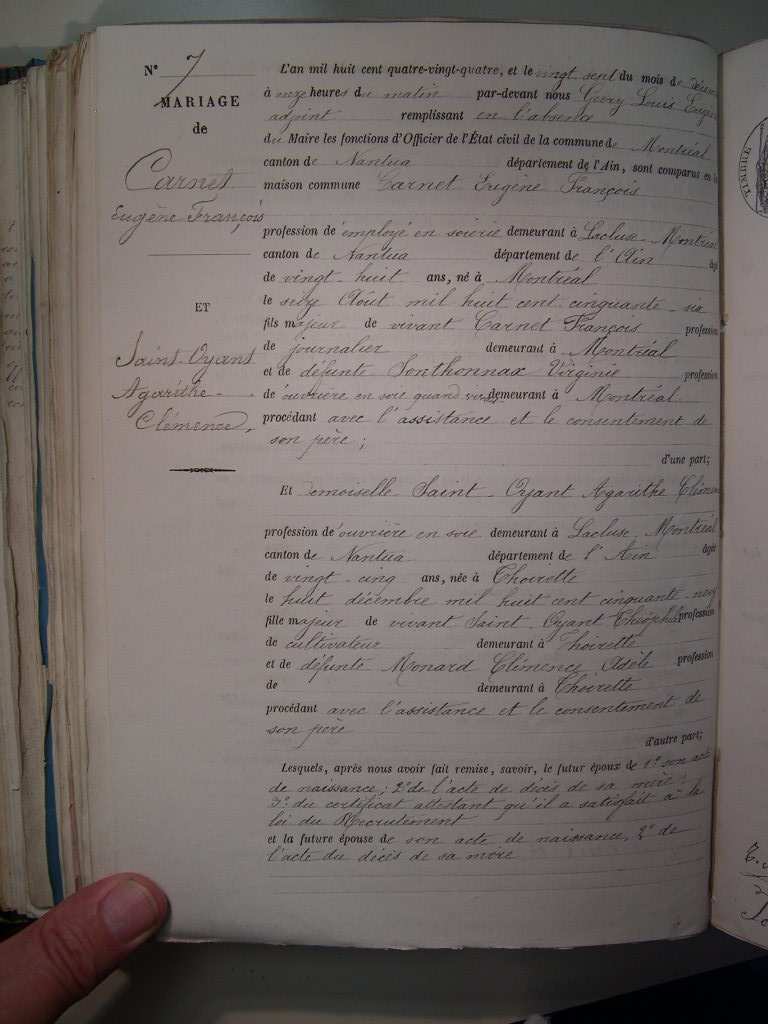 N° 7
MARIAGE
de
Carnet
Eugène François
ET
Saint-Oyant
Agarithe
Clémence,
L'an mil huit cent quatre-vingt-quatre, et le vingt sept du mois de
à onze heures du matin par-devant nous Louis
adjoint remplissant en l'absence
du Maire les fonctions d'Officier de l'État civil de la commune de Montréal
canton de Nantua département de l'Ain, sont comparus en
maison commune Carnet Eugène François
profession de employé en soierie demeurant à Lacluse-Montréal
canton de Nantua département de l'Ain âgé
de vingt-huit ans, né à Montréal
le seize Août mil huit cent cinquante-six
fils majeur de vivant Carnet François profession
de journalier demeurant à Montréal
et de défunte Sonthonnax Virginie profession
de ouvrière en soie quand demeurant à Montréal
procédant avec l'assistance et le consentement de
son père ;
d'une part;
Et demoiselle Saint-Oyant Agarithe
profession de ouvrière en soie demeurant à Lacluse-Montréal
canton de Nantua département de l'Ain âgée
de vingt-cinq ans, née à Thoirette
le huit décembre mil huit cent cinquante-neuf
fille majeur de vivant Saint-Oyant profession
de cultivateur demeurant à Thoirette
et de défunte Monard Clémence Adèle profession
de demeurant à Thoirette
procédant avec l'assistance et le consentement de
son père
d'autre part;
Lesquels, après nous avoir fait remise, savoir, le futur époux de 1° son acte
de naissance; 2° de l'acte de décès de sa mère
3° du certificat attestant qu'il a satisfait à la
loi du Recrutement
et la future épouse de son acte de naissance, 2° de
l'acte du décès de sa mère
TIMBRE